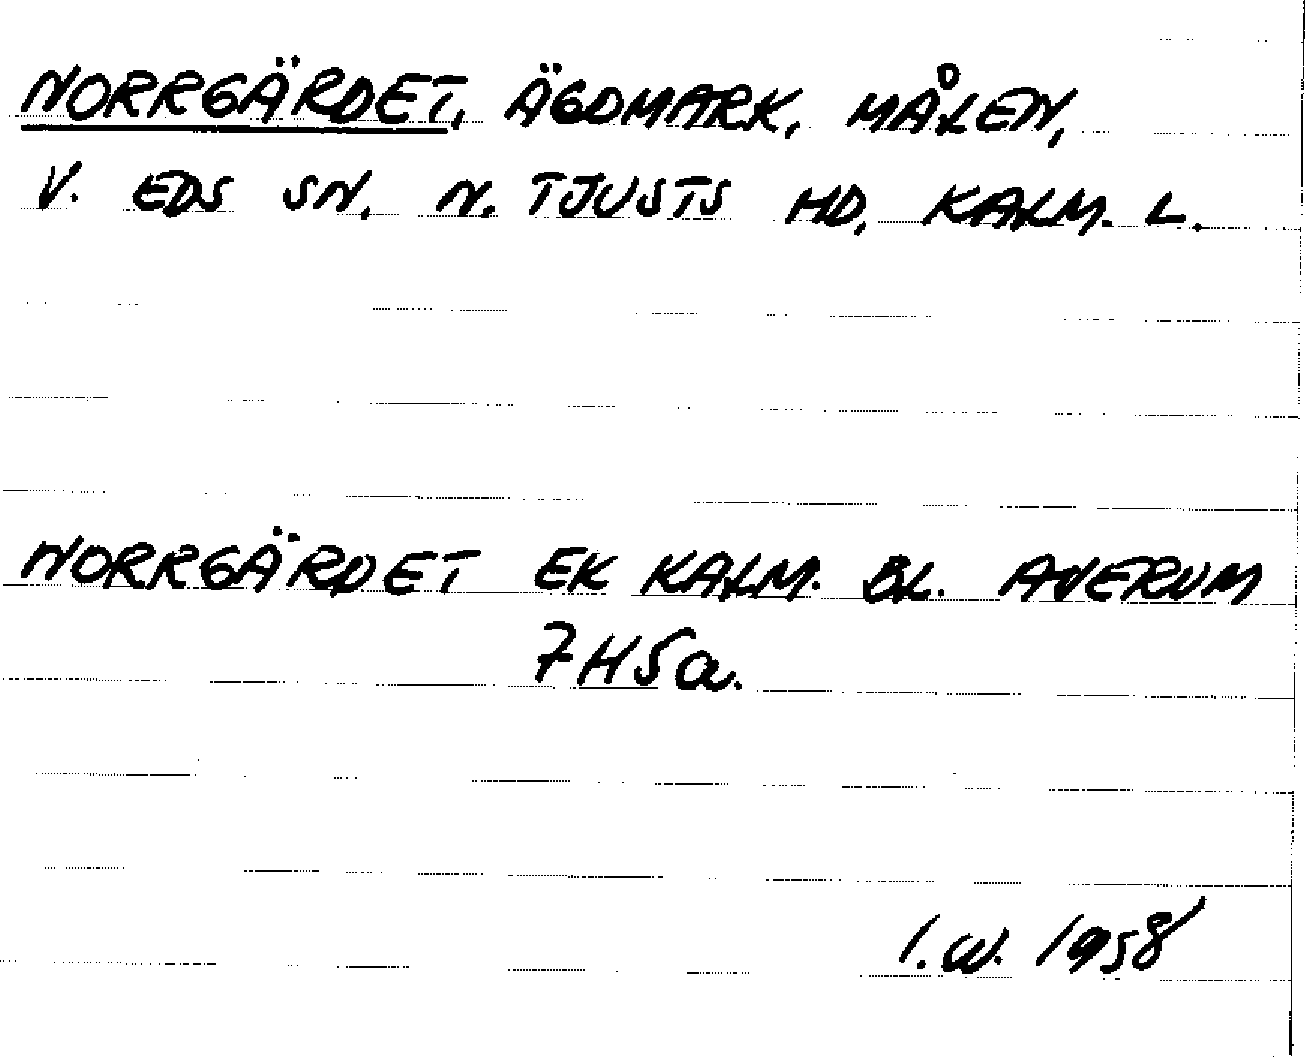 NORRGÄRDET, ÄGDMARK, MÅLEN,
V. EDS SN. N. TJUSTS HD, KALM. L.
NORRGÄRDET EK KALM. BL. AVERUM
7H5a.
I.W. 1958